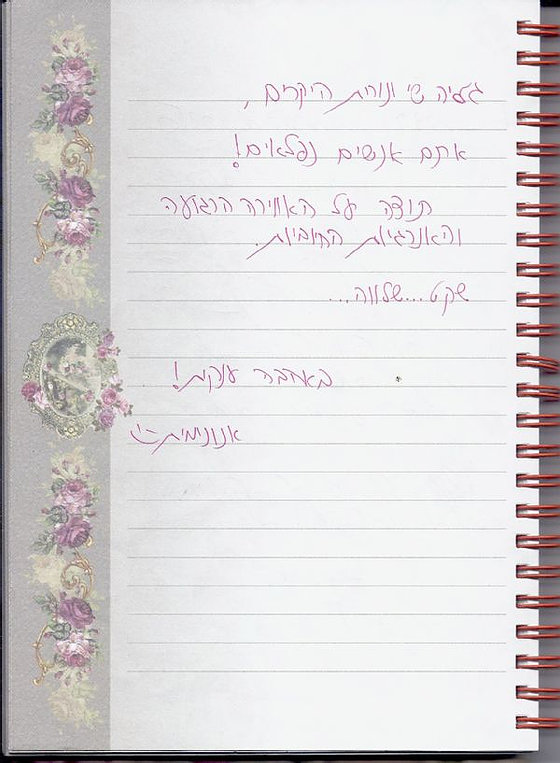 גליה שי ונורית היקרים,
אתם אנשים נפלאים!
תודה על האווירה הרגועה
והאנרגיות החיוביות.
שקט...שלווה...
באהבה ענקית!
אנונימית :-)